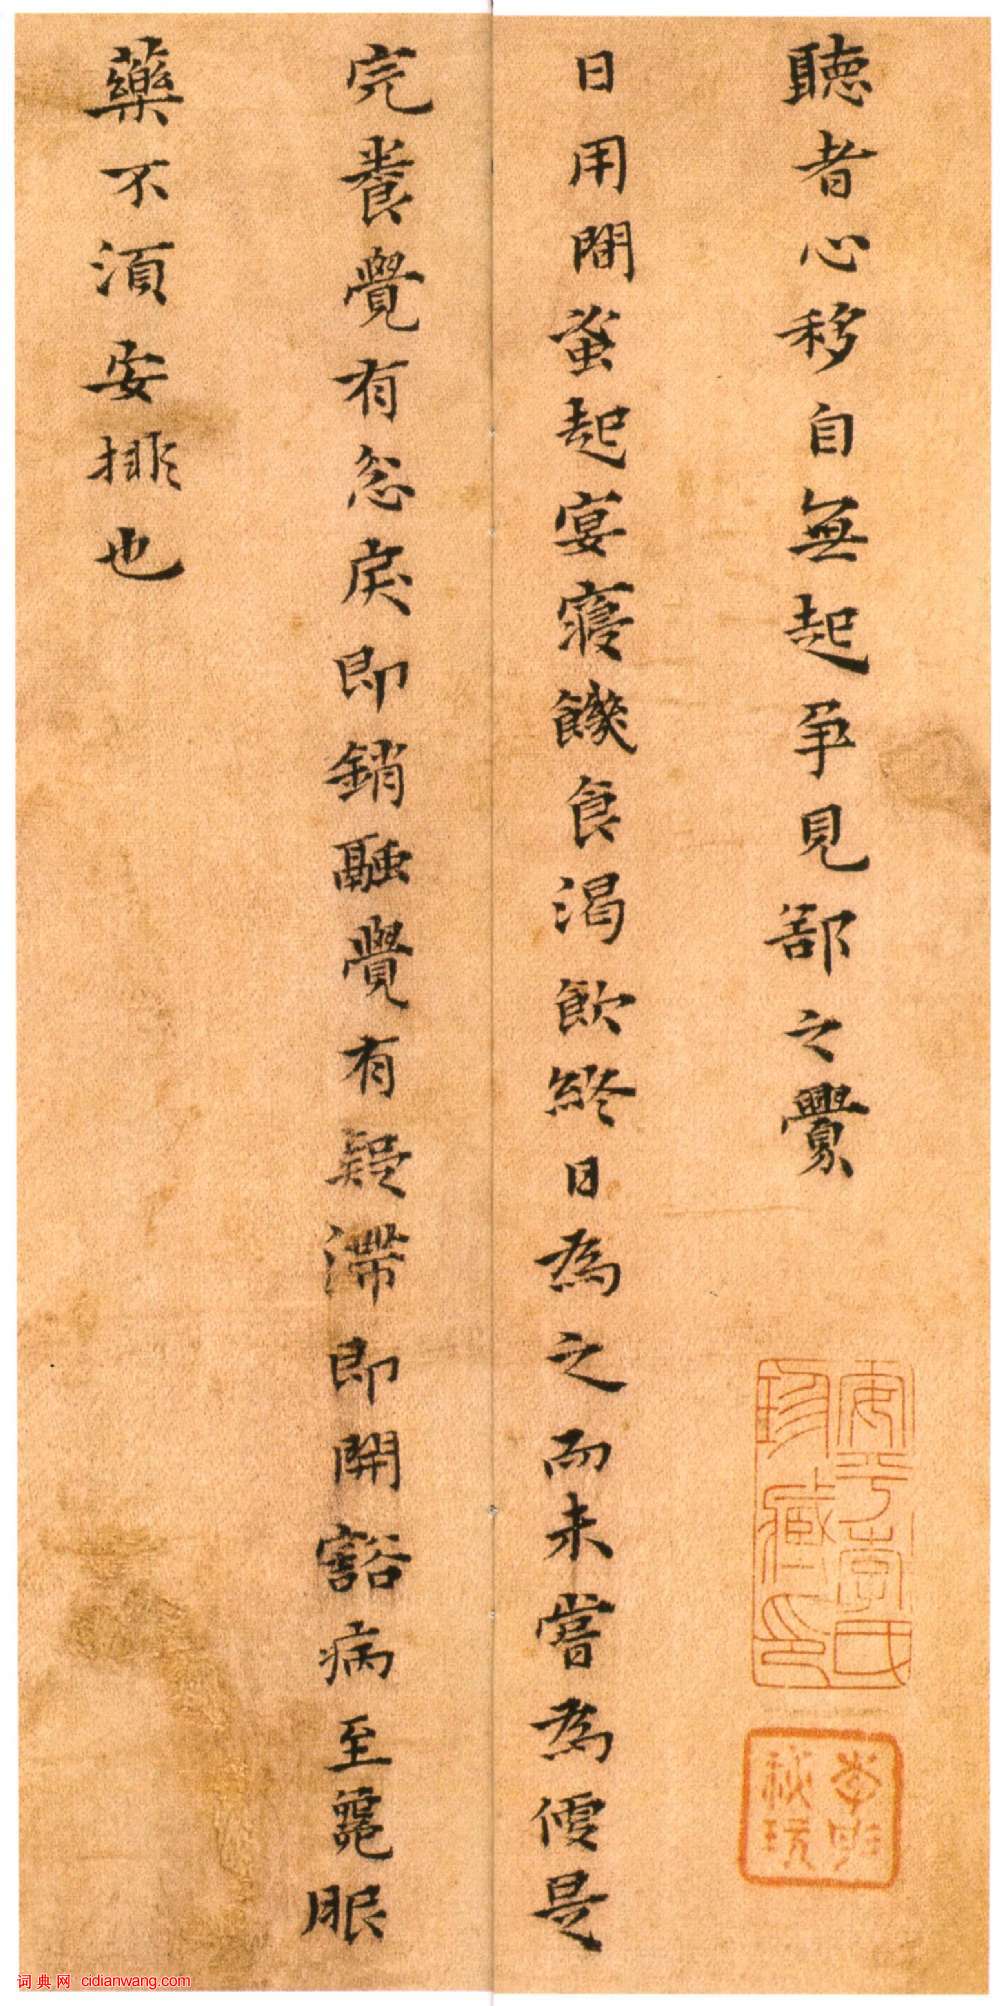 聽者心移自無起爭見郤之釁
日用間蚤起宴寢饑食渴飲終日為之而未嘗為便是
完養覺有忿戾即銷融覺有疑滯即開豁病至服
藥不須安排也
安平李氏
珍藏印
词典网 cidianwang.com